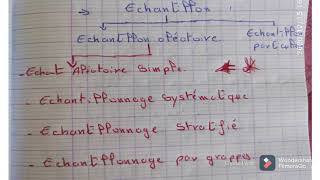 Echantillon
Echantillon aléatoire Echantillon
particulier
- Echant Aléatoire Simple.
- Echantillonnage Systématique
- Echantillonnage Stratifié
- Echantillonnage par grappes
Wondershare
Filmora9